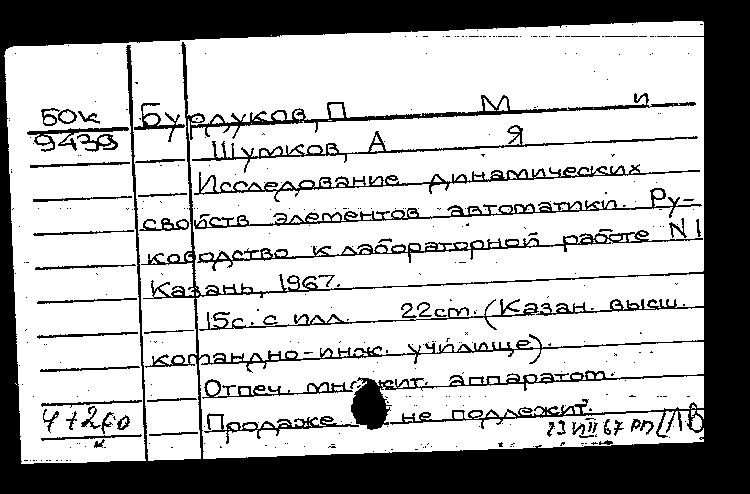 БОк Бурдуков, П М и
9439 Шумков, А Я
Исследование динамических
свойств элементов автоматики. Ру-
ководство к лабораторной работе N 1
Казань, 1967.
15с. с илл. 22см. (Казан. высш.
командно-инж. училище).
Отпеч. множит. аппаратом.
Продаже не подлежит.
23 VIII 67